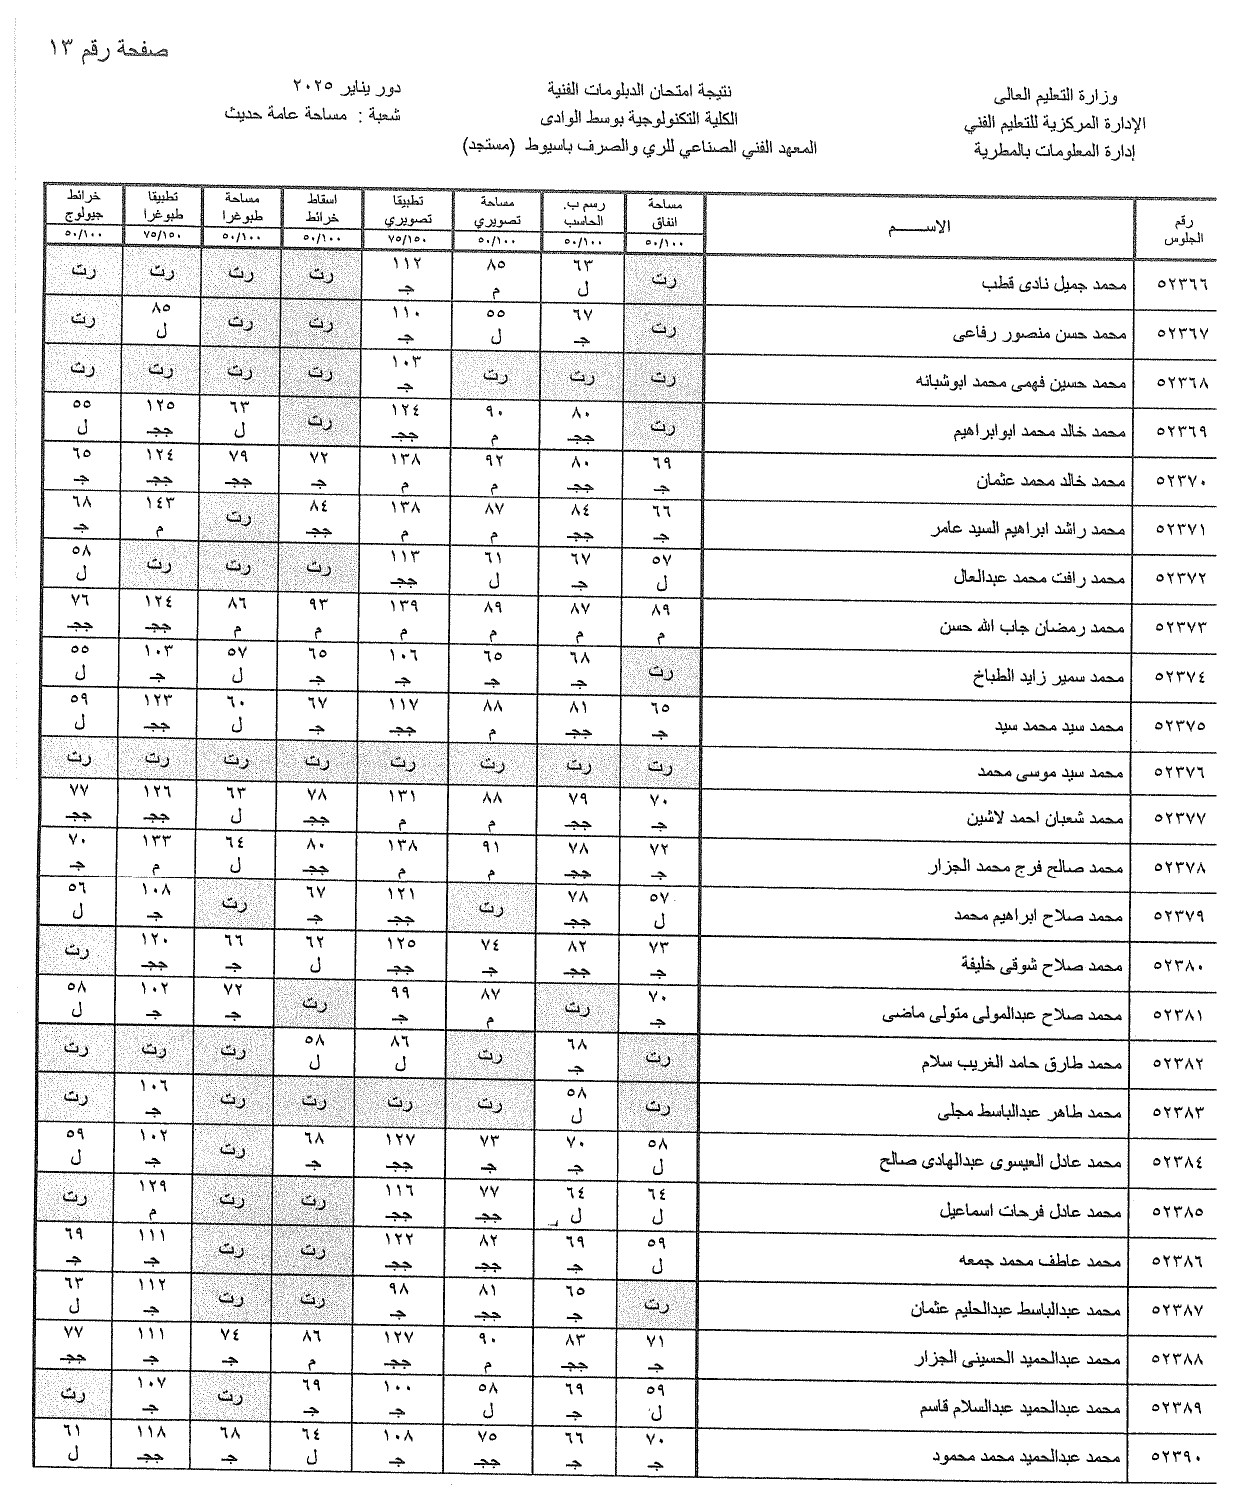 صفحة رقم ١٣
وزارة التعليم العالى
الإدارة المركزية للتعليم الفني
إدارة المعلومات بالمطرية
نتيجة امتحان الدبلومات الفنية
الكلية التكنولوجية بوسط الوادى
المعهد الفني الصناعي للري والصرف باسيوط (مستجد)
دور يناير ٢٠٢٥
شعبة : مساحة عامة حديث
رقم الجلوس | الاســــم | مساحة انفاق ٥٠/١٠٠ | رسم ب. الحاسب ٥٠/١٠٠ | مساحة تصويري ٥٠/١٠٠ | تطبيقا تصويري ٧٥/١٥٠ | اسقاط خرائط ٥٠/١٠٠ | مساحة طبوغرا ٥٠/١٠٠ | تطبيقا طبوغرا ٧٥/١٥٠ | خرائط جيولوج ٥٠/١٠٠
٥٢٣٦٦ | محمد جميل نادى قطب | رت | ٦٣ ل | ٨٥ م | ١١٢ جـ | رت | رت | رت | رت
٥٢٣٦٧ | محمد حسن منصور رفاعى | رت | ٦٧ جـ | ٥٥ ل | ١١٠ جـ | رت | رت | ٨٥ ل | رت
٥٢٣٦٨ | محمد حسين فهمى محمد ابوشبانه | رت | رت | رت | ١٠٣ جـ | رت | رت | رت | رت
٥٢٣٦٩ | محمد خالد محمد ابوابراهيم | رت | ٨٠ ججـ | ٩٠ م | ١٢٤ ججـ | رت | ٦٣ ل | ١٢٥ ججـ | ٥٥ ل
٥٢٣٧٠ | محمد خالد محمد عثمان | ٦٩ جـ | ٨٠ ججـ | ٩٢ م | ١٣٨ م | ٧٢ جـ | ٧٩ ججـ | ١٢٤ ججـ | ٦٥ جـ
٥٢٣٧١ | محمد راشد ابراهيم السيد عامر | ٦٦ جـ | ٨٤ ججـ | ٨٧ م | ١٣٨ م | ٨٤ ججـ | رت | ١٤٣ م | ٦٨ جـ
٥٢٣٧٢ | محمد رافت محمد عبدالعال | ٥٧ ل | ٦٧ جـ | ٦١ ل | ١١٣ ججـ | رت | رت | رت | ٥٨ ل
٥٢٣٧٣ | محمد رمضان جاب الله حسن | ٨٩ م | ٨٧ م | ٨٩ م | ١٣٩ م | ٩٣ م | ٨٦ م | ١٢٤ ججـ | ٧٦ ججـ
٥٢٣٧٤ | محمد سمير زايد الطباخ | رت | ٦٨ جـ | ٦٥ جـ | ١٠٦ جـ | ٦٥ جـ | ٥٧ ل | ١٠٣ جـ | ٥٥ ل
٥٢٣٧٥ | محمد سيد محمد سيد | ٦٥ جـ | ٨١ ججـ | ٨٨ م | ١١٧ ججـ | ٦٧ جـ | ٦٠ ل | ١٢٣ ججـ | ٥٩ ل
٥٢٣٧٦ | محمد سيد موسى محمد | رت | رت | رت | رت | رت | رت | رت | رت
٥٢٣٧٧ | محمد شعبان احمد لاشين | ٧٠ جـ | ٧٩ ججـ | ٨٨ م | ١٣١ م | ٧٨ ججـ | ٦٣ ل | ١٢٦ ججـ | ٧٧ ججـ
٥٢٣٧٨ | محمد صالح فرج محمد الجزار | ٧٢ جـ | ٧٨ ججـ | ٩١ م | ١٣٨ م | ٨٠ ججـ | ٦٤ ل | ١٣٣ م | ٧٠ جـ
٥٢٣٧٩ | محمد صلاح ابراهيم محمد | ٥٧ ل | ٧٨ ججـ | رت | ١٢١ ججـ | ٦٧ جـ | رت | ١٠٨ جـ | ٥٦ ل
٥٢٣٨٠ | محمد صلاح شوقى خليفة | ٧٣ جـ | ٨٢ ججـ | ٧٤ جـ | ١٢٥ ججـ | ٦٢ ل | ٦٦ جـ | ١٢٠ ججـ | رت
٥٢٣٨١ | محمد صلاح عبدالمولى متولى ماضى | ٧٠ جـ | رت | ٨٧ م | ٩٩ جـ | رت | ٧٢ جـ | ١٠٢ جـ | ٥٨ ل
٥٢٣٨٢ | محمد طارق حامد الغريب سلام | رت | ٦٨ جـ | رت | ٨٦ ل | ٥٨ ل | رت | رت | رت
٥٢٣٨٣ | محمد طاهر عبدالباسط مجلى | رت | ٥٨ ل | رت | رت | رت | رت | ١٠٦ جـ | رت
٥٢٣٨٤ | محمد عادل العيسوى عبدالهادى صالح | ٥٨ ل | ٧٠ جـ | ٧٣ جـ | ١٢٧ ججـ | ٦٨ جـ | رت | ١٠٢ جـ | ٥٩ ل
٥٢٣٨٥ | محمد عادل فرحات اسماعيل | ٦٤ ل | ٦٤ ل | ٧٧ ججـ | ١١٦ ججـ | رت | رت | ١٢٩ م | رت
٥٢٣٨٦ | محمد عاطف محمد جمعه | ٥٩ ل | ٦٩ جـ | ٨٢ ججـ | ١٢٢ ججـ | رت | رت | ١١١ جـ | ٦٩ جـ
٥٢٣٨٧ | محمد عبدالباسط عبدالحليم عثمان | رت | ٦٥ جـ | ٨١ ججـ | ٩٨ جـ | رت | رت | ١١٢ جـ | ٦٣ ل
٥٢٣٨٨ | محمد عبدالحميد الحسينى الجزار | ٧١ جـ | ٨٣ ججـ | ٩٠ م | ١٢٧ ججـ | ٨٦ م | ٧٤ جـ | ١١١ جـ | ٧٧ ججـ
٥٢٣٨٩ | محمد عبدالحميد عبدالسلام قاسم | ٥٩ ل | ٦٩ جـ | ٥٨ ل | ١٠٠ جـ | ٦٩ جـ | رت | ١٠٧ جـ | رت
٥٢٣٩٠ | محمد عبدالحميد محمد محمود | ٧٠ جـ | ٦٦ جـ | ٧٥ ججـ | ١٠٨ جـ | ٦٤ ل | ٦٨ جـ | ١١٨ ججـ | ٦١ ل